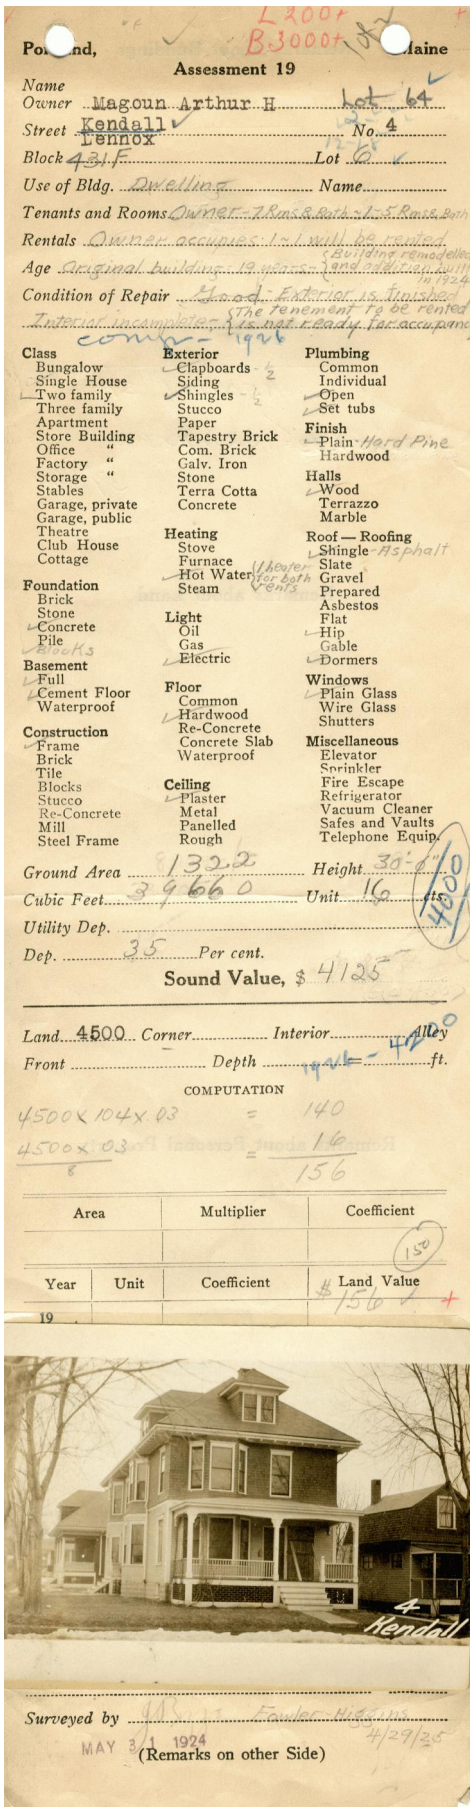 L 200+
B.3000+
1 of 2
Portland, Maine
Assessment 19
Name
Owner Magoun Arthur H Lot 64
Street Kendall No. 4
Lennox
Block 431F Lot 6
Use of Bldg. Dwelling Name
Tenants and Rooms Owner-7 Rms & Bath ~1-5 Rms & Bath
Rentals Owner occupies 1~1 will be rented
Age Original building-19 years- {Building remodelled and addition built in 1924
Condition of Repair Good - Exterior is finished
Interior incomplete- {The tenement to be rented is not ready for occupancy
1926
Class
Bungalow
Single House
Two family
Three family
Apartment
Store Building
Office "
Factory "
Storage "
Stables
Garage, private
Garage, public
Theatre
Club House
Cottage
Foundation
Brick
Stone
Concrete
Pile
Blocks
Basement
Full
Cement Floor
Waterproof
Construction
Frame
Brick
Tile
Blocks
Stucco
Re-Concrete
Mill
Steel Frame
Exterior
Clapboards - ½
Siding
Shingles - ½
Stucco
Paper
Tapestry Brick
Com. Brick
Galv. Iron
Stone
Terra Cotta
Concrete
Heating
Stove
Furnace
Hot Water (1 heater for both rents
Steam
Light
Oil
Gas
Electric
Floor
Common
Hardwood
Re-Concrete
Concrete Slab
Waterproof
Ceiling
Plaster
Metal
Panelled
Rough
Plumbing
Common
Individual
Open
Set tubs
Finish
Plain - Hard Pine
Hardwood
Halls
Wood
Terrazzo
Marble
Roof — Roofing
Shingle - Asphalt
Slate
Gravel
Prepared
Asbestos
Flat
Hip
Gable
Dormers
Windows
Plain Glass
Wire Glass
Shutters
Miscellaneous
Elevator
Sprinkler
Fire Escape
Refrigerator
Vacuum Cleaner
Safes and Vaults
Telephone Equip.
Ground Area 1322 Height 30'-0"
Cubic Feet 39660 Unit 16 cts.
4000
Utility Dep.
Dep. 35 Per cent.
Sound Value, $ 4125
Land 4500 Corner Interior Alley
Front Depth ft.
1926 - 4200
COMPUTATION
4500 x 104 x .03 = 140
4500 x .03 = 16
8
156
Area Multiplier Coefficient
150
Year Unit Coefficient Land Value
$ 156
19
4
Kendall
Surveyed by Fowler-Higgins
MAY 31 1924 4/29/25
(Remarks on other Side)